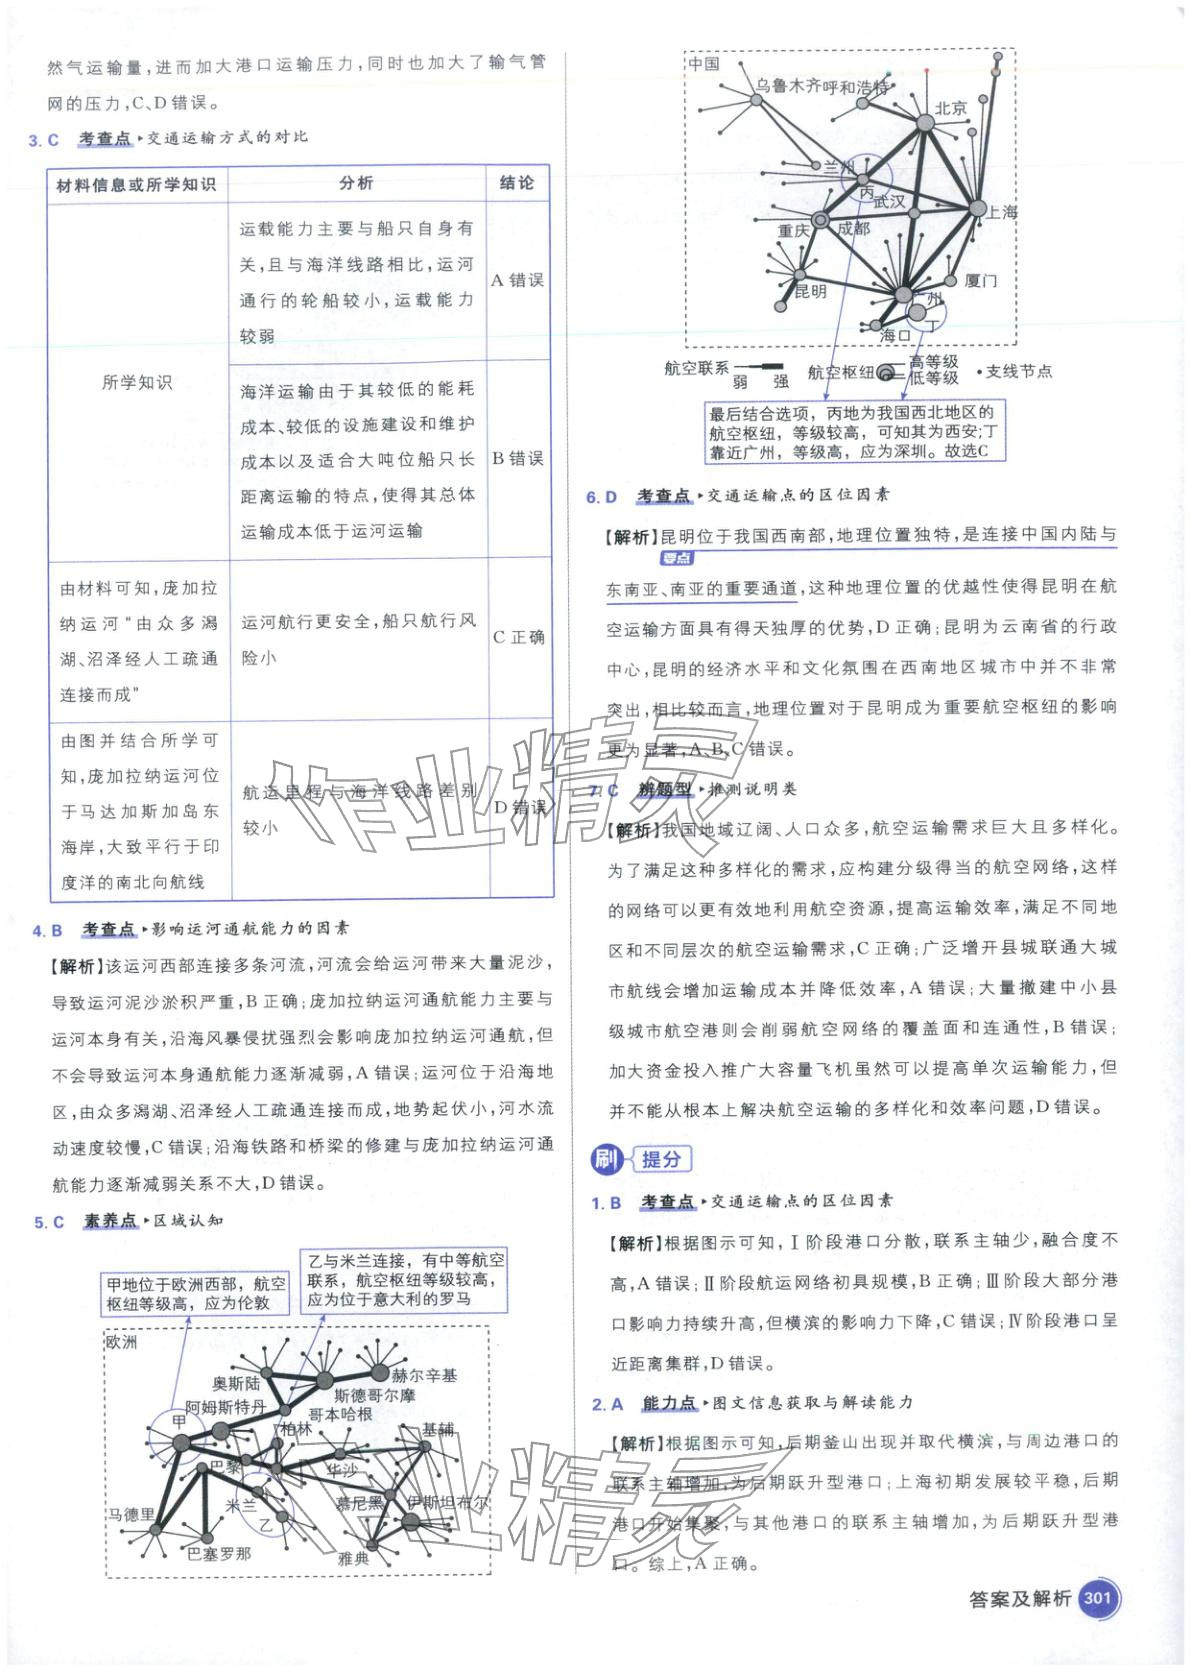 然气运输量,进而加大港口运输压力,同时也加大了输气管
网的压力,C、D错误。
3. C 考查点▸交通运输方式的对比
材料信息或所学知识 分析 结论
所学知识
运载能力主要与船只自身有
关,且与海洋线路相比,运河
通行的轮船较小,运载能力
较弱
A错误
海洋运输由于其较低的能耗
成本、较低的设施建设和维护
成本以及适合大吨位船只长
距离运输的特点,使得其总体
运输成本低于运河运输
B错误
由材料可知,庞加拉
纳运河“由众多潟
湖、沼泽经人工疏通
连接而成”
运河航行更安全,船只航行风
险小
C正确
由图并结合所学可
知,庞加拉纳运河位
于马达加斯加岛东
海岸,大致平行于印
度洋的南北向航线
航运里程与海洋线路差别
较小
D错误
4. B 考查点▸影响运河通航能力的因素
【解析】该运河西部连接多条河流,河流会给运河带来大量泥沙,
导致运河泥沙淤积严重,B正确;庞加拉纳运河通航能力主要与
运河本身有关,沿海风暴侵扰强烈会影响庞加拉纳运河通航,但
不会导致运河本身通航能力逐渐减弱,A错误;运河位于沿海地
区,由众多潟湖、沼泽经人工疏通连接而成,地势起伏小,河水流
动速度较慢,C错误;沿海铁路和桥梁的修建与庞加拉纳运河通
航能力逐渐减弱关系不大,D错误。
5. C 素养点▸区域认知
乙与米兰连接，有中等航空
联系，航空枢纽等级较高，
应为位于意大利的罗马
甲地位于欧洲西部，航空
枢纽等级高，应为伦敦
欧洲
奥斯陆
赫尔辛基
斯德哥尔摩
阿姆斯特丹
哥本哈根
甲
柏林
基辅
巴黎
华沙
米兰
慕尼黑
伊斯坦布尔
马德里
乙
巴塞罗那
雅典
中国
乌鲁木齐
呼和浩特
北京
兰州
丙
武汉
上海
重庆
成都
昆明
厦门
广州
丁
海口
航空联系 弱 强 航空枢纽 高等级 低等级 •支线节点
最后结合选项，丙地为我国西北地区的
航空枢纽，等级较高，可知其为西安;丁
靠近广州，等级高，应为深圳。故选C
6. D 考查点▸交通运输点的区位因素
【解析】昆明位于我国西南部,地理位置独特,是连接中国内陆与
要点
东南亚、南亚的重要通道,这种地理位置的优越性使得昆明在航
空运输方面具有得天独厚的优势,D正确;昆明为云南省的行政
中心,昆明的经济水平和文化氛围在西南地区城市中并不非常
突出,相比较而言,地理位置对于昆明成为重要航空枢纽的影响
更为显著,A、B、C错误。
7. C 辨题型▸推测说明类
【解析】我国地域辽阔、人口众多,航空运输需求巨大且多样化。
为了满足这种多样化的需求,应构建分级得当的航空网络,这样
的网络可以更有效地利用航空资源,提高运输效率,满足不同地
区和不同层次的航空运输需求,C正确;广泛增开县城联通大城
市航线会增加运输成本并降低效率,A错误;大量撤建中小县
级城市航空港则会削弱航空网络的覆盖面和连通性,B错误;
加大资金投入推广大容量飞机虽然可以提高单次运输能力,但
并不能从根本上解决航空运输的多样化和效率问题,D错误。
刷 提分
1. B 考查点▸交通运输点的区位因素
【解析】根据图示可知,Ⅰ阶段港口分散,联系主轴少,融合度不
高,A错误;Ⅱ阶段航运网络初具规模,B正确;Ⅲ阶段大部分港
口影响力持续升高,但横滨的影响力下降,C错误;Ⅳ阶段港口呈
近距离集群,D错误。
2. A 能力点▸图文信息获取与解读能力
【解析】根据图示可知,后期釜山出现并取代横滨,与周边港口的
联系主轴增加,为后期跃升型港口;上海初期发展较平稳,后期
港口开始集聚,与其他港口的联系主轴增加,为后期跃升型港
口。综上,A正确。
作业精灵
作业精灵
答案及解析 301